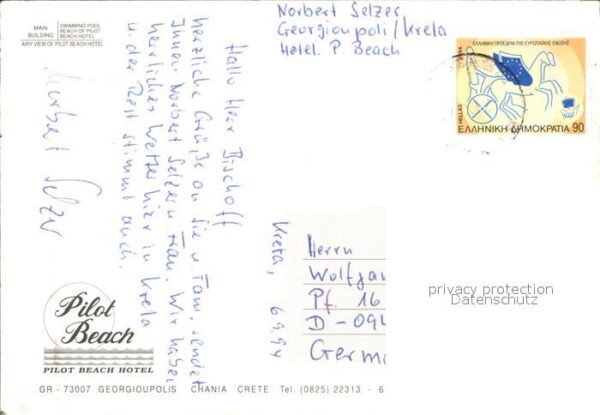 MAIN BUILDING
SWIMMING POOL
BEACH OF PILOT
BEACH HOTEL
AIRY VIEW OF PILOT BEACH HOTEL
Norbert Selzer
Georgioupoli/Kreta
Hotel. P. Beach
ΕΛΛΗΝΙΚΗ ΠΡΟΕΔΡΙΑ ΤΗΣ ΕΥΡΩΠΑΪΚΗΣ ΕΝΩΣΗΣ
HELLAS
ΕΛΛΗΝΙΚΗ ΔΗΜΟΚΡΑΤΙΑ 90
Hallo Herr Bischoff
herzliche Grüße an Sie u. Fam. sendet
Ihnen Norbert Selzer u. Frau. Wir haben
herrliches Wetter hier in Kreta
u. der Rest stimmt auch.
Norbert Selzer
Kreta, 6 9.94
Herrn
Wolfgan
Pf. 16
D-094
Germa
privacy protection
Datenschutz
Pilot
Beach
PILOT BEACH HOTEL
GR - 73007 GEORGIOUPOLIS CHANIA CRETE Tel. (0825) 22313 - 6